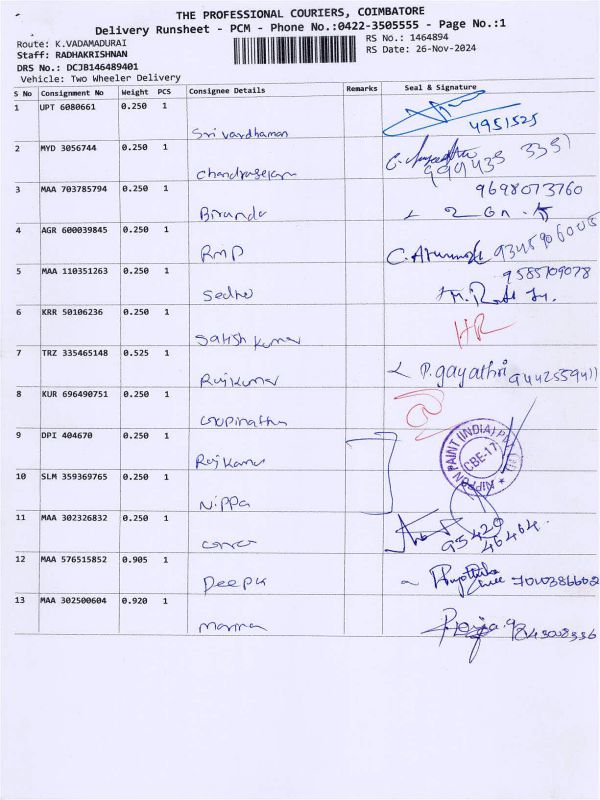 THE PROFESSIONAL COURIERS, COIMBATORE
Delivery Runsheet - PCM - Phone No.:0422-3505555 - Page No.:1
Route: K.VADAMADURAI
RS No.: 1464894
Staff: RADHAKRISHNAN
RS Date: 26-Nov-2024
DRS No.: DCJB146489401
Vehicle: Two Wheeler Delivery
S No Consignment No Weight PCS Consignee Details Remarks Seal & Signature
1 UPT 6080661 0.250 1
Sri vardhaman 4951525
2 MYD 3056744 0.250 1
Chandrasekar 999435 3351
3 MAA 703785794 0.250 1 9698073760
Birunda
4 AGR 600039845 0.250 1
RMP C.
5 MAA 110351263 0.250 1 9585709078
6 KRR 50106236 0.250 1 HR
Satish kumar
7 TRZ 335465148 0.525 1 P. gayathri 9442559411
Rajkumar
8 KUR 696490751 0.250 1
Gopinathan
9 DPI 404670 0.250 1
Rajkumar
NIPPON PAINT (INDIA) CBE-17
10 SLM 359369765 0.250 1
Nippa
11 MAA 302326832 0.250 1 95420
46464.
12 MAA 576515852 0.905 1
Deepu 7010386602
13 MAA 302500604 0.920 1